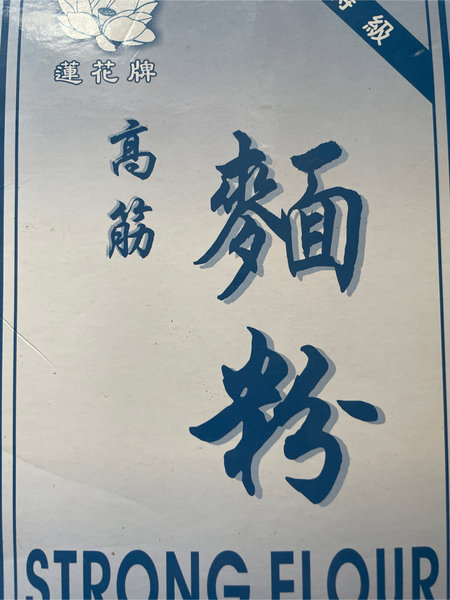 特級
蓮花牌
高筋
麵粉
STRONG FLOUR